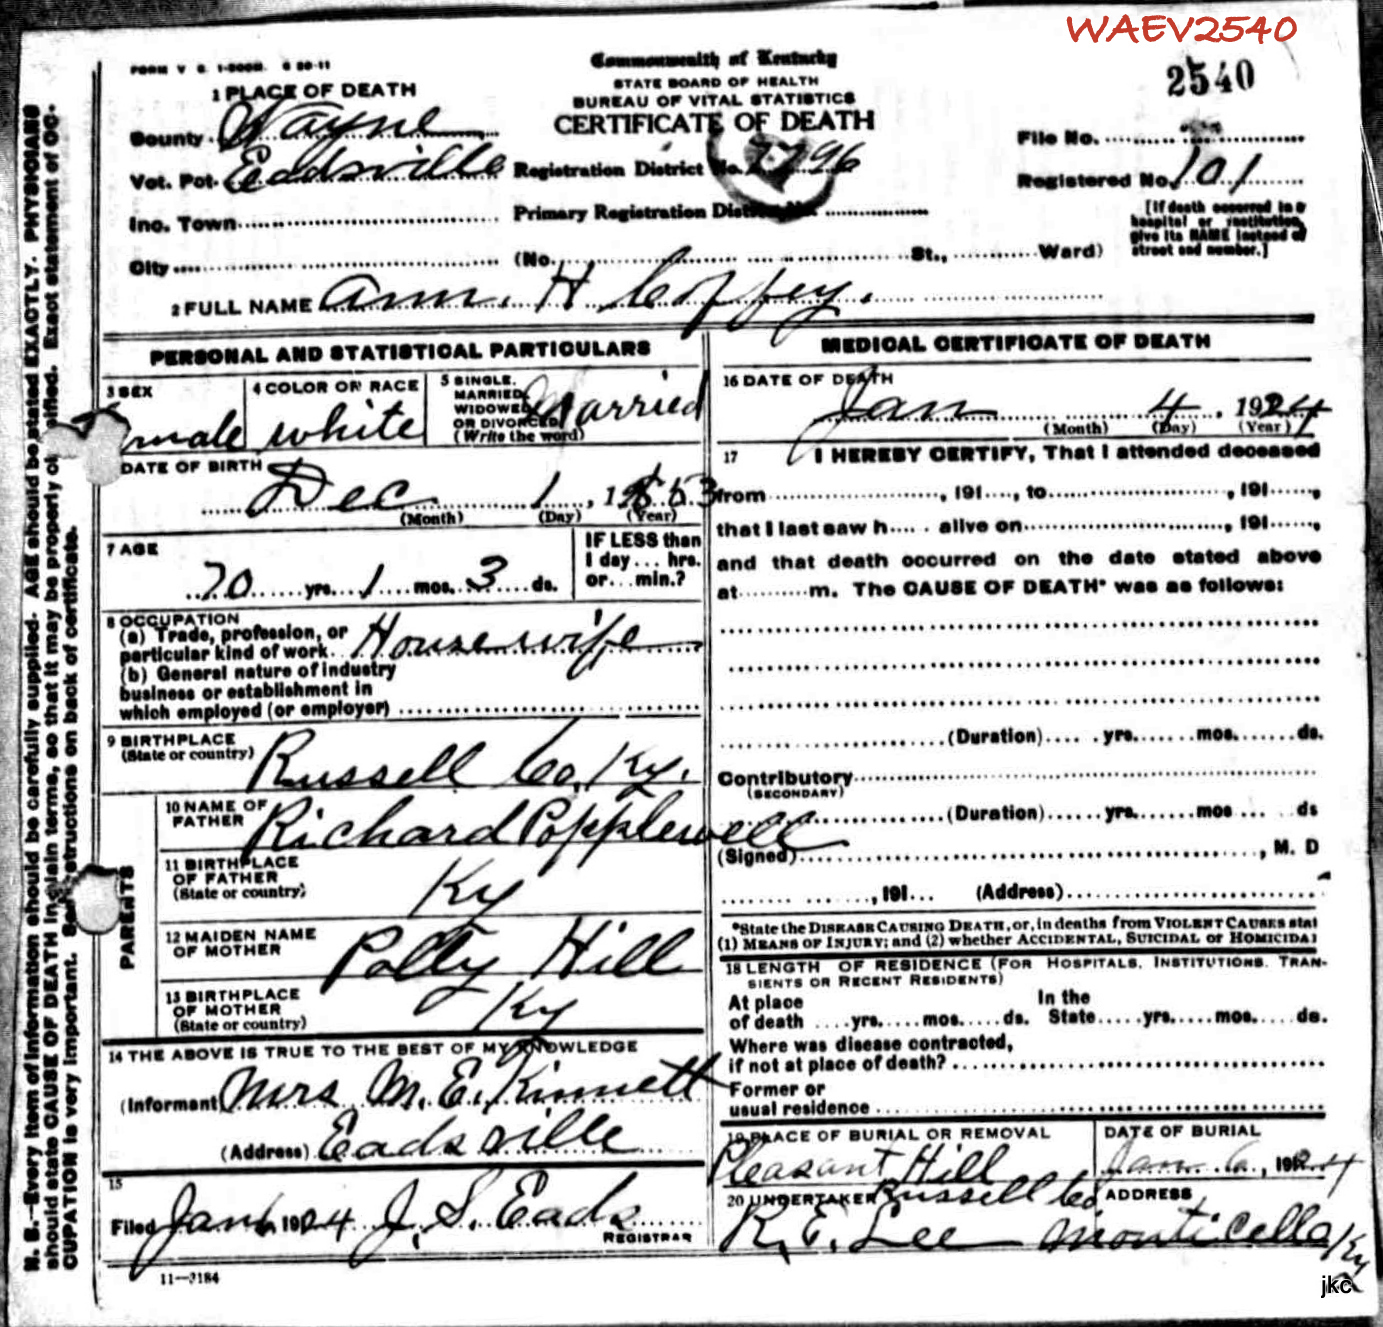 WAEV2540
FORM V S. 1-500M. 6 20-11
Commonwealth of Kentucky
STATE BOARD OF HEALTH
BUREAU OF VITAL STATISTICS
CERTIFICATE OF DEATH
2540
1 PLACE OF DEATH
County Wayne
Vot. Pct. Eadsville
Inc. Town
City
Registration District No. 7796
Primary Registration District No.
(No. St., Ward)
File No.
Registered No. 101
[If death occurred in a
hospital or institution,
give its NAME instead of
street and number.]
2 FULL NAME Ann. H Coffey.
PERSONAL AND STATISTICAL PARTICULARS
3 SEX
male
4 COLOR OR RACE
white
5 SINGLE,
MARRIED,
WIDOWED
OR DIVORCED
(Write the word)
Married
DATE OF BIRTH
Dec 1, 1853
(Month) (Day) (Year)
7 AGE
70 yrs. 1 mos. 3 ds.
IF LESS than
1 day... hrs.
or... min.?
8 OCCUPATION
(a) Trade, profession, or
particular kind of work Housewife
(b) General nature of industry
business or establishment in
which employed (or employer)
9 BIRTHPLACE
(State or country)
Russell Co, Ky.
PARENTS
10 NAME OF
FATHER
Richard Popplewell
11 BIRTHPLACE
OF FATHER
(State or country)
Ky
12 MAIDEN NAME
OF MOTHER
Polly Hill
13 BIRTHPLACE
OF MOTHER
(State or country)
Ky
14 THE ABOVE IS TRUE TO THE BEST OF MY KNOWLEDGE
(Informant Mrs M. E. Kinnett
(Address) Eadsville
15
Filed Jan 6 1924 J. S. Eads
REGISTRAR
11-3184
MEDICAL CERTIFICATE OF DEATH
16 DATE OF DEATH
Jan 4, 1924
(Month) (Day) (Year)
17 I HEREBY CERTIFY, That I attended deceased
from , 191...., to , 191....,
that I last saw h.... alive on , 191....,
and that death occurred on the date stated above
at m. The CAUSE OF DEATH* was as follows:
(Duration) yrs. mos. ds.
Contributory
(SECONDARY)
(Duration) yrs. mos ds
(Signed) , M. D
, 191... (Address)
*State the DISEASE CAUSING DEATH, or, in deaths from VIOLENT CAUSES stat
(1) MEANS OF INJURY; and (2) whether ACCIDENTAL, SUICIDAL or HOMICIDAL
18 LENGTH OF RESIDENCE (FOR HOSPITALS, INSTITUTIONS, TRAN-
SIENTS OR RECENT RESIDENTS)
At place
of death yrs. mos. ds.
In the
State yrs. mos. ds.
Where was disease contracted,
if not at place of death?
Former or
usual residence
19 PLACE OF BURIAL OR REMOVAL
Pleasant Hill
Russell Co
DATE OF BURIAL
Jan 6, 1924
20 UNDERTAKER
R. E. Lee
ADDRESS
Monticello Ky
jkc
N. B.—Every item of information should be carefully supplied. AGE should be stated EXACTLY. PHYSICIANS
should state CAUSE OF DEATH in plain terms, so that it may be properly classified. Exact statement of OC-
CUPATION is very important. See instructions on back of certificate.